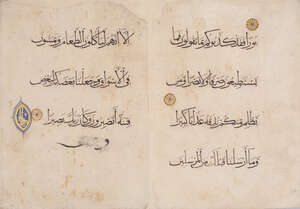 بورا فقد كذبوكم بما تقولون فما
تستطيعون صرفا ولا نصرا ومن
يظلم منكم نذقه عذابا كبيرا
وما أرسلنا قبلك من المرسلين
إلا إنهم ليأكلون الطعام ويمشون
في الأسواق وجعلنا بعضكم لبعض
فتنة أتصبرون وكان ربك بصيرا